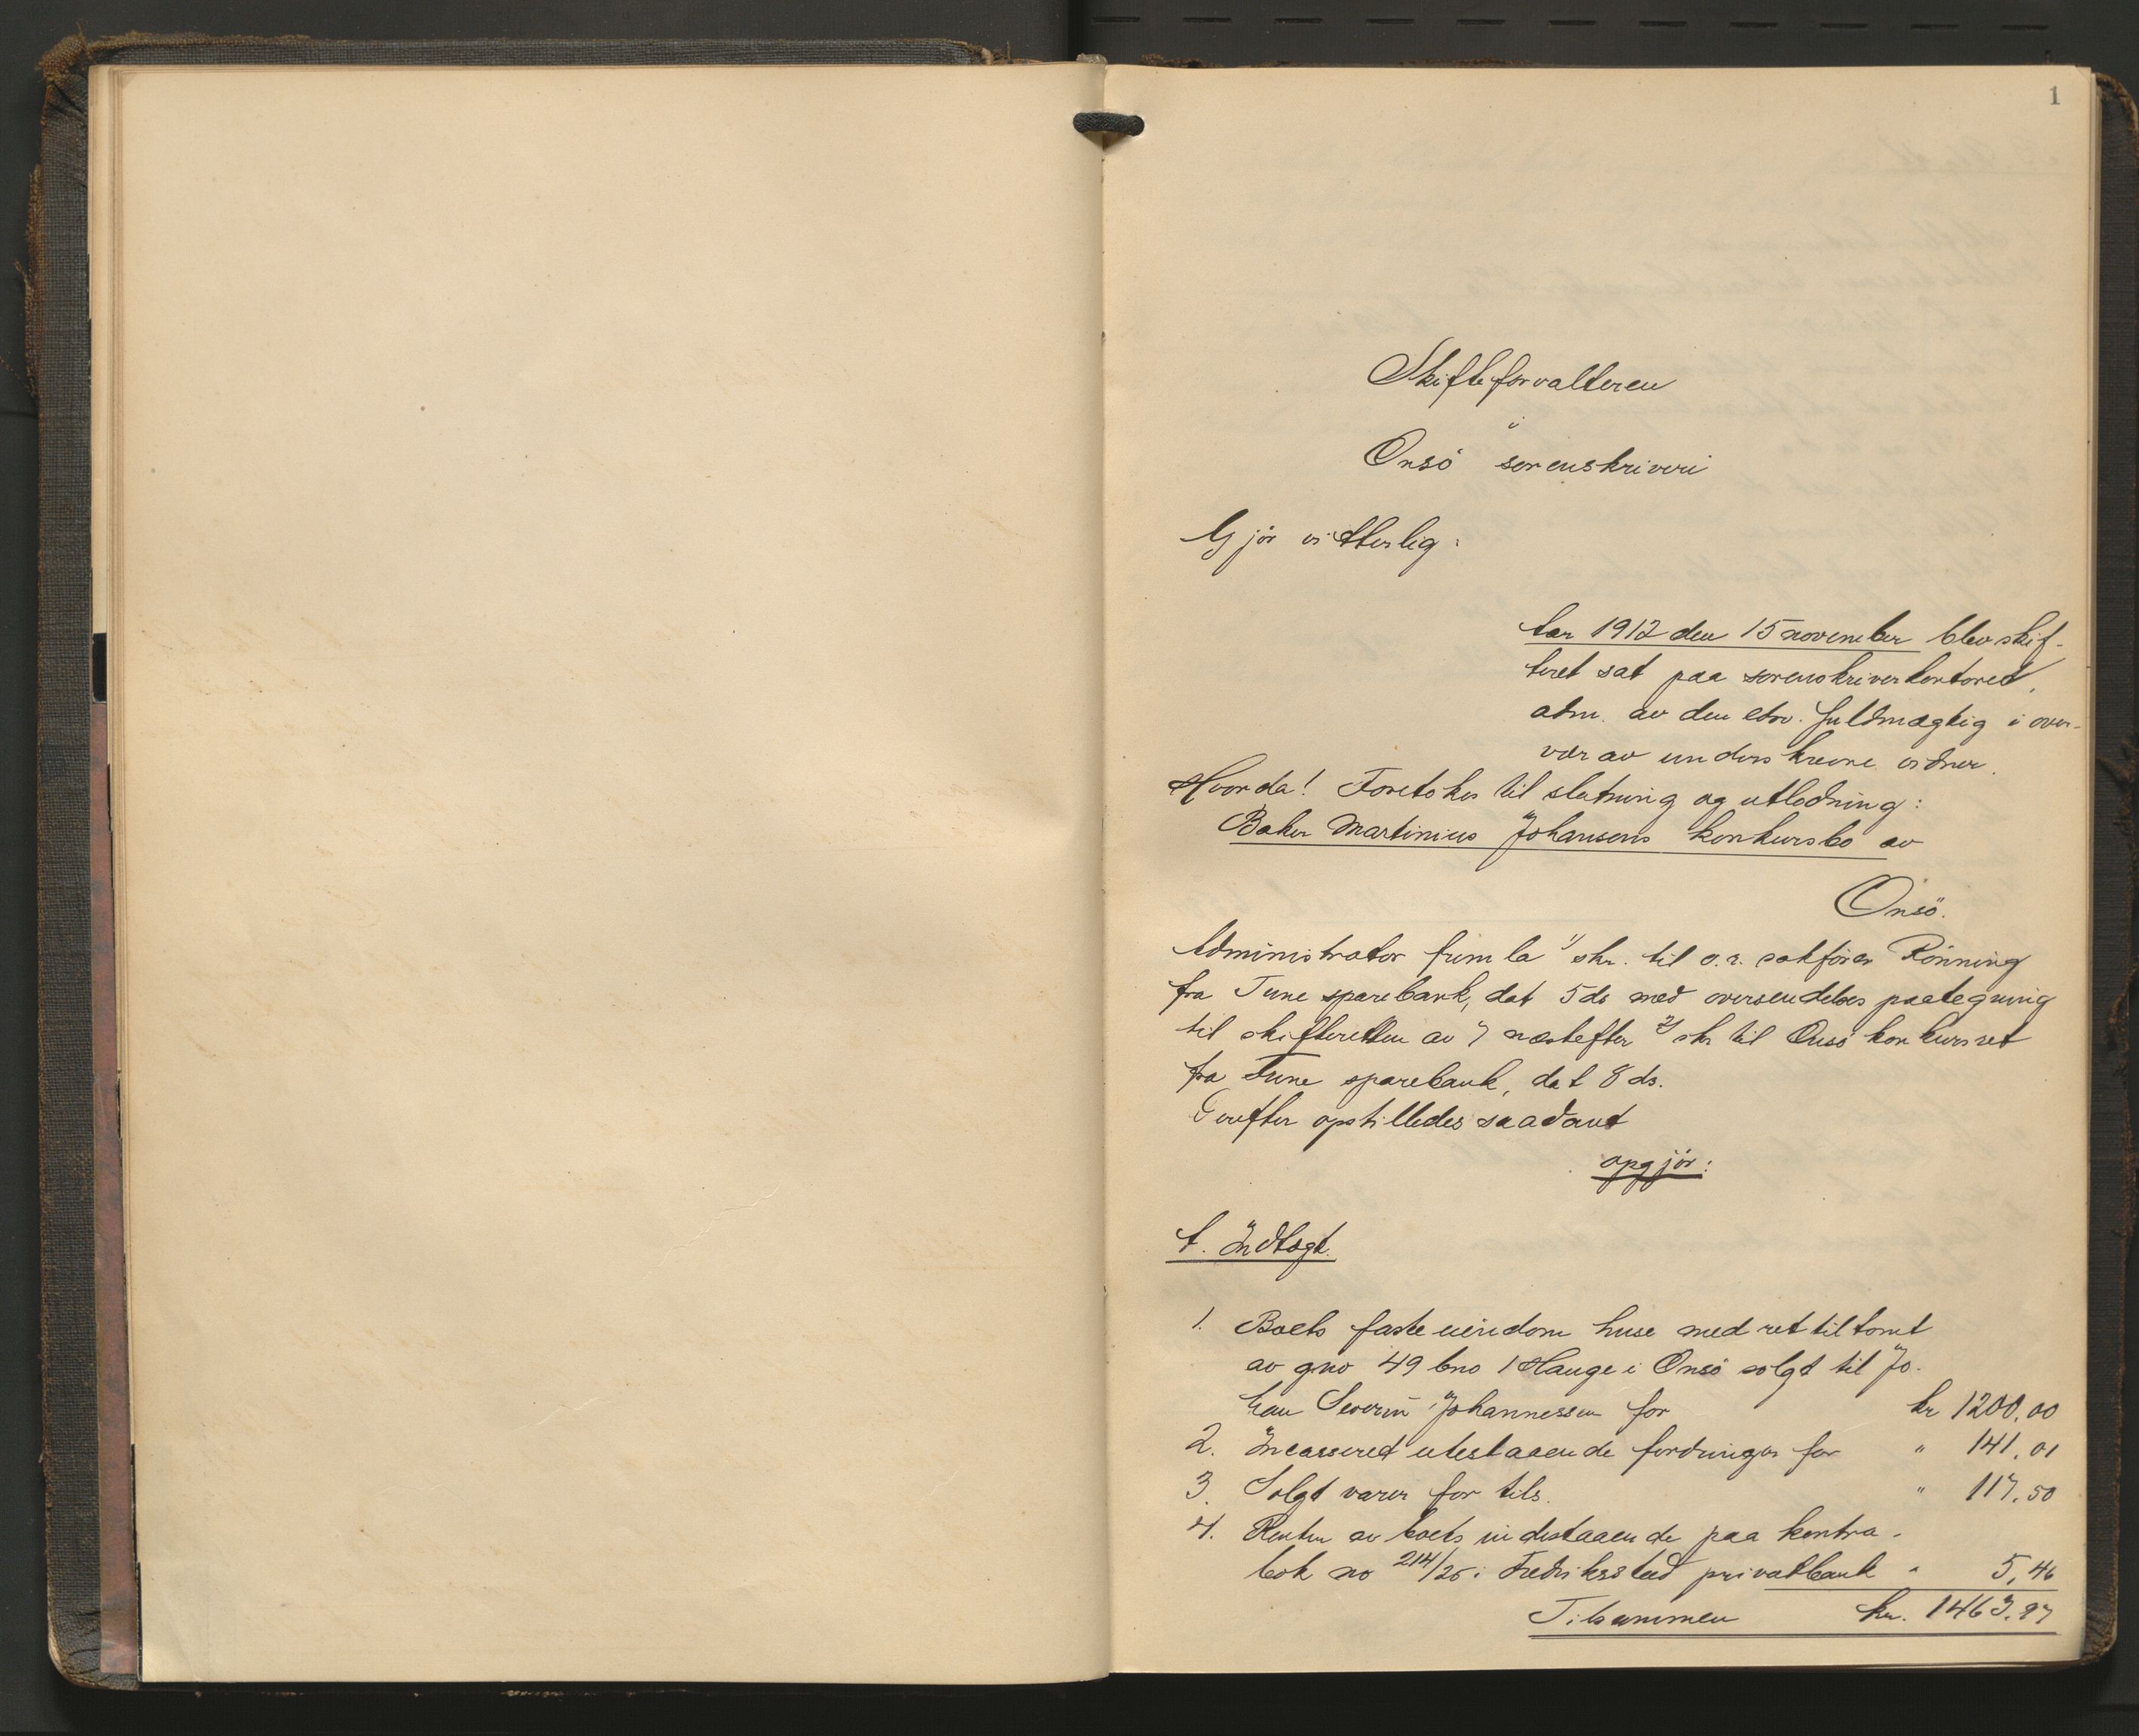 1
Skifteforvalteren
i
Onsö sorenskriveri
Gjör vitterlig:
Aar 1912 den 15 november blev skif-
teret sat paa sorenskriverkontoret,
adm. av den edsv. fuldmægtig i over-
vær av underskrevne vidner.
Hvorda! Foretokes til slutning og utlodning:
Baker Martinius Johansens konkursbo av
Onsö.
Administrator fremla 1/ skr. til o.r. sakförer Rönning
fra Tune sparebank, dat 5 ds med oversendelses paategning
til skifteretten av 7 næstefter 2/ skr til Onsö konkursret
fra Tune sparebank, dat 8 ds.
Derefter opstilledes saadant
opgjör:
A. Indtægt.
1. Boets faste eiendom huse med ret til tomt
av gno 49 bno 1 Hauge i Onsö solgt til Jo-
han Severin Johannessen for kr 1200.00
2. Incasseret utestaaende fordringer for " 141.01
3. Solgt varer for tils. " 117.50
4. Renter av boets indestaaende paa kontra-
bok no 214/25 i Fredriksstad privatbank " 5,46
Tilsammen kr. 1463.97